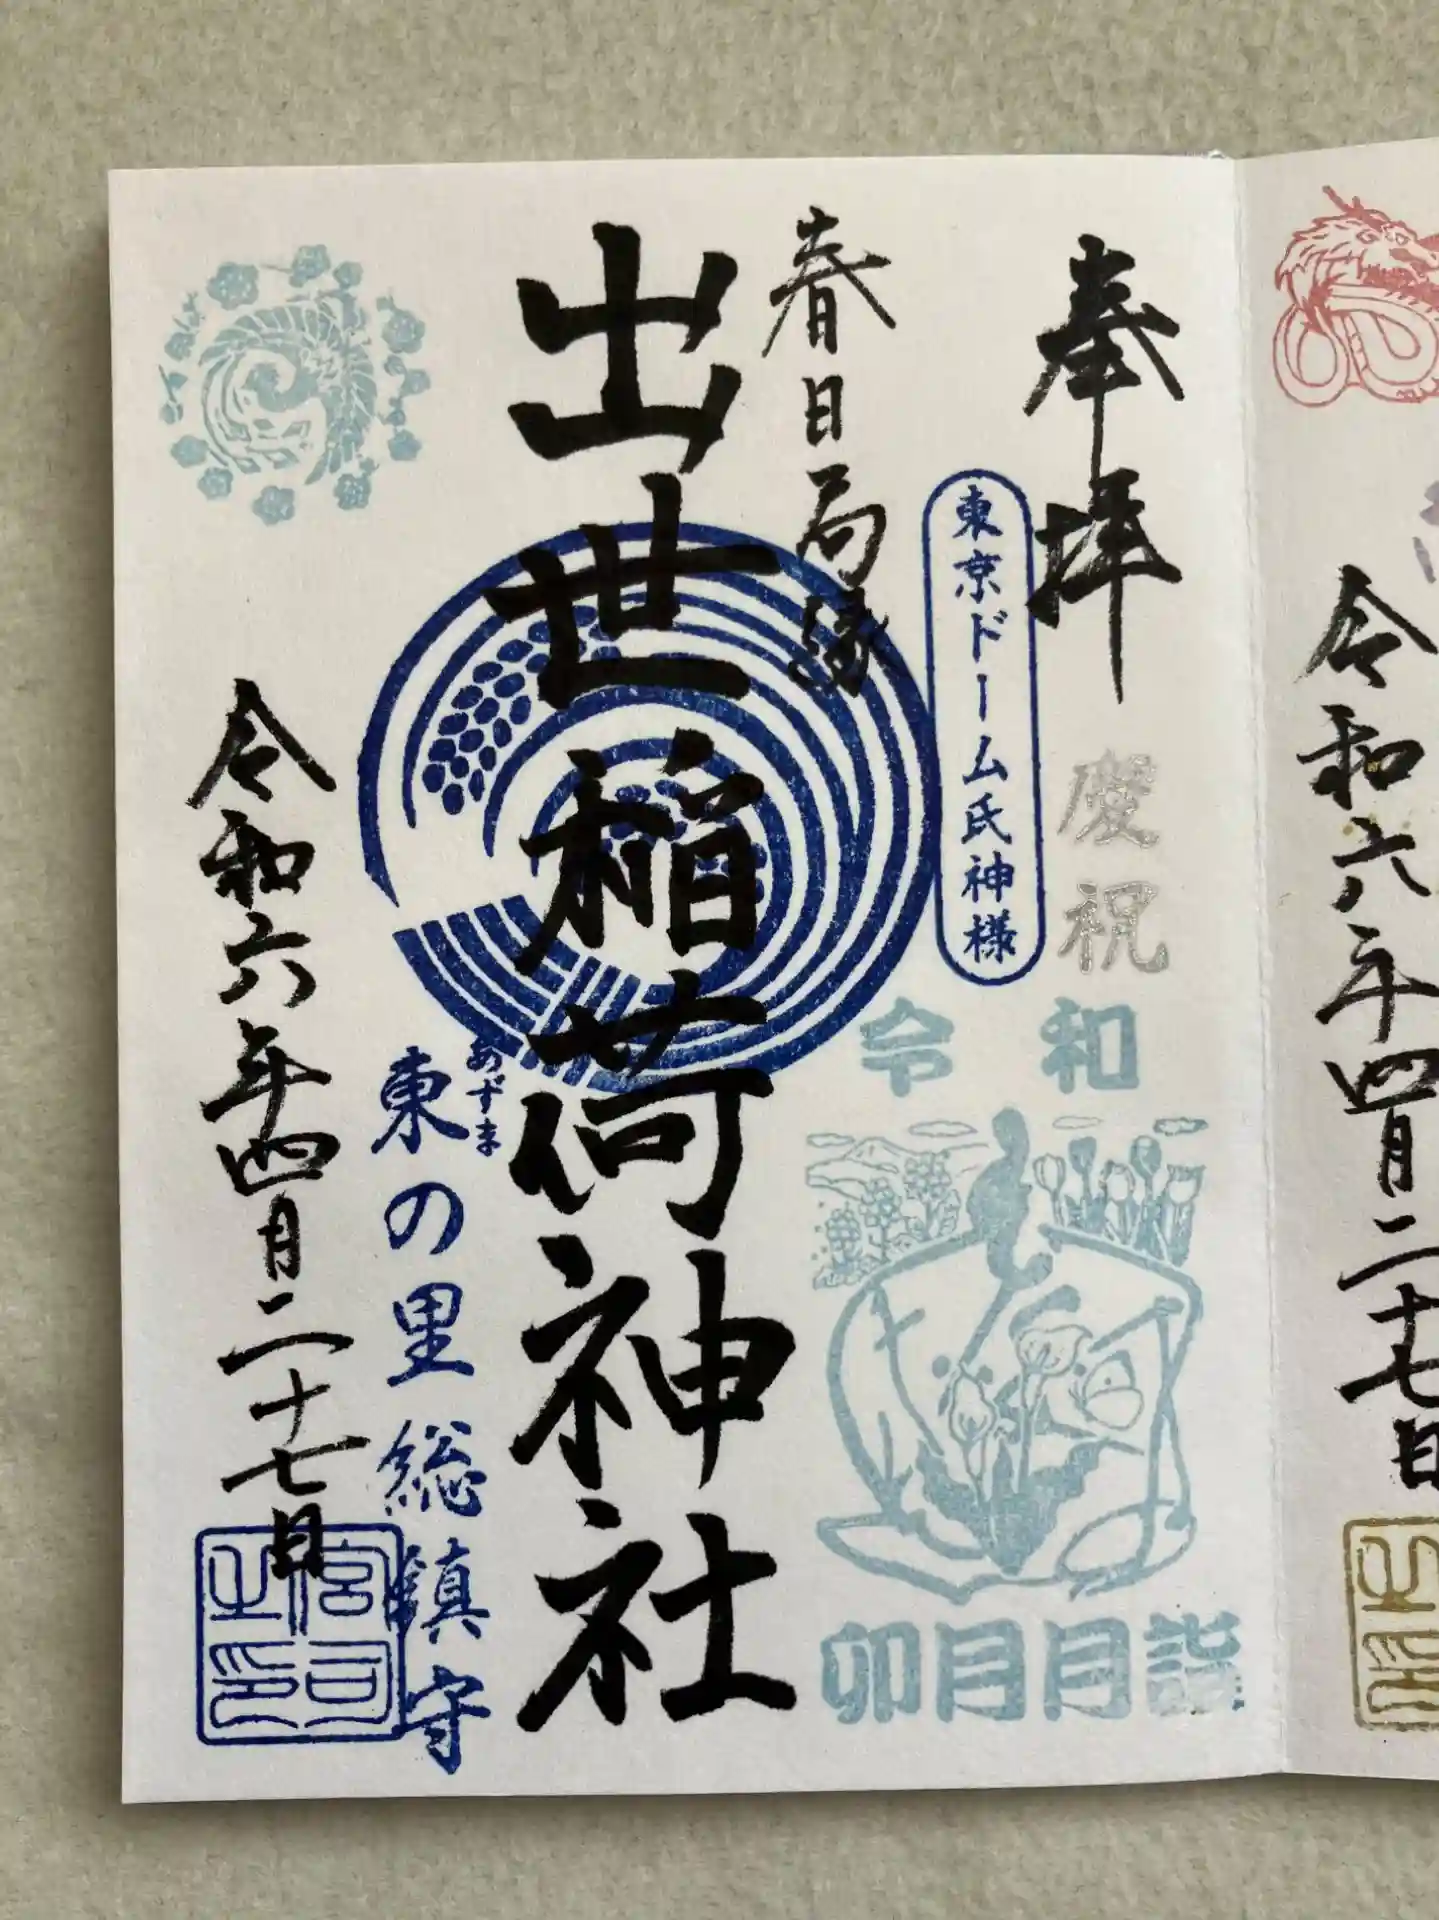 奉拝
慶祝
令和
卯月月詣
東京ドーム氏神様
春日局縁
出世稲荷神社
あずま
東の里総鎮守
令和六年四月二十七日
宮司之印
令和六年四月二十七日